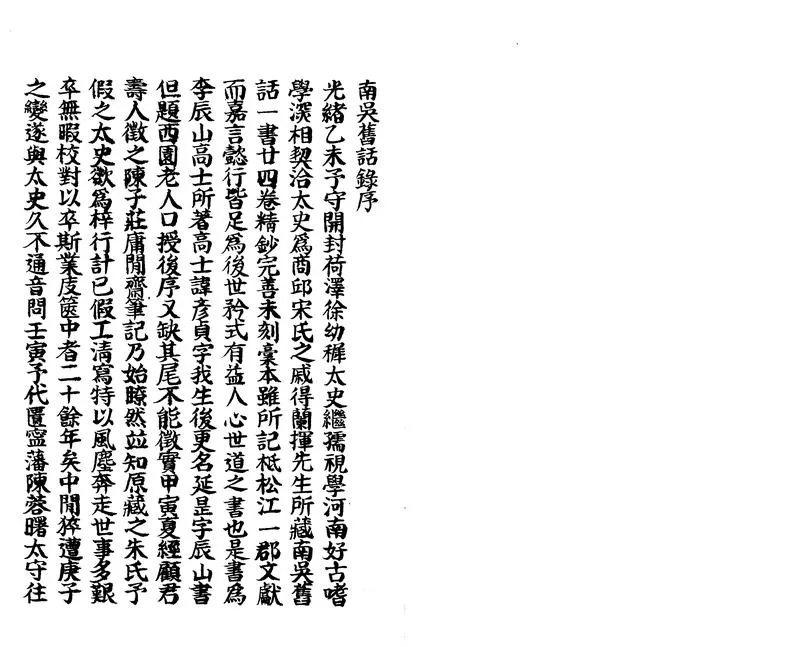 南吳舊話錄序
光緒乙未予守開封荷澤徐幼穉太史繼孺視學河南好古嗜
學深相契洽太史爲商邱宋氏之戚得蘭揮先生所藏南吳舊
話一書廿四卷精鈔完善未刻稾本雖所記柢松江一郡文獻
而嘉言懿行皆足爲後世矜式有益人心世道之書也是書爲
李辰山高士所著高士諱彦貞字我生後更名延昰字辰山書
但題西園老人口授後序又缺其尾不能徵實甲寅夏經顧君
壽人徵之陳子莊庸閒齋筆記乃始瞭然並知原藏之朱氏予
假之太史欲爲梓行計已假工清寫特以風塵奔走世事多艱
卒無暇校對以卒斯業庋篋中者二十餘年矣中閒猝遭庚子
之變遂與太史久不通音問壬寅予代匱寍藩陳蓉曙太守往